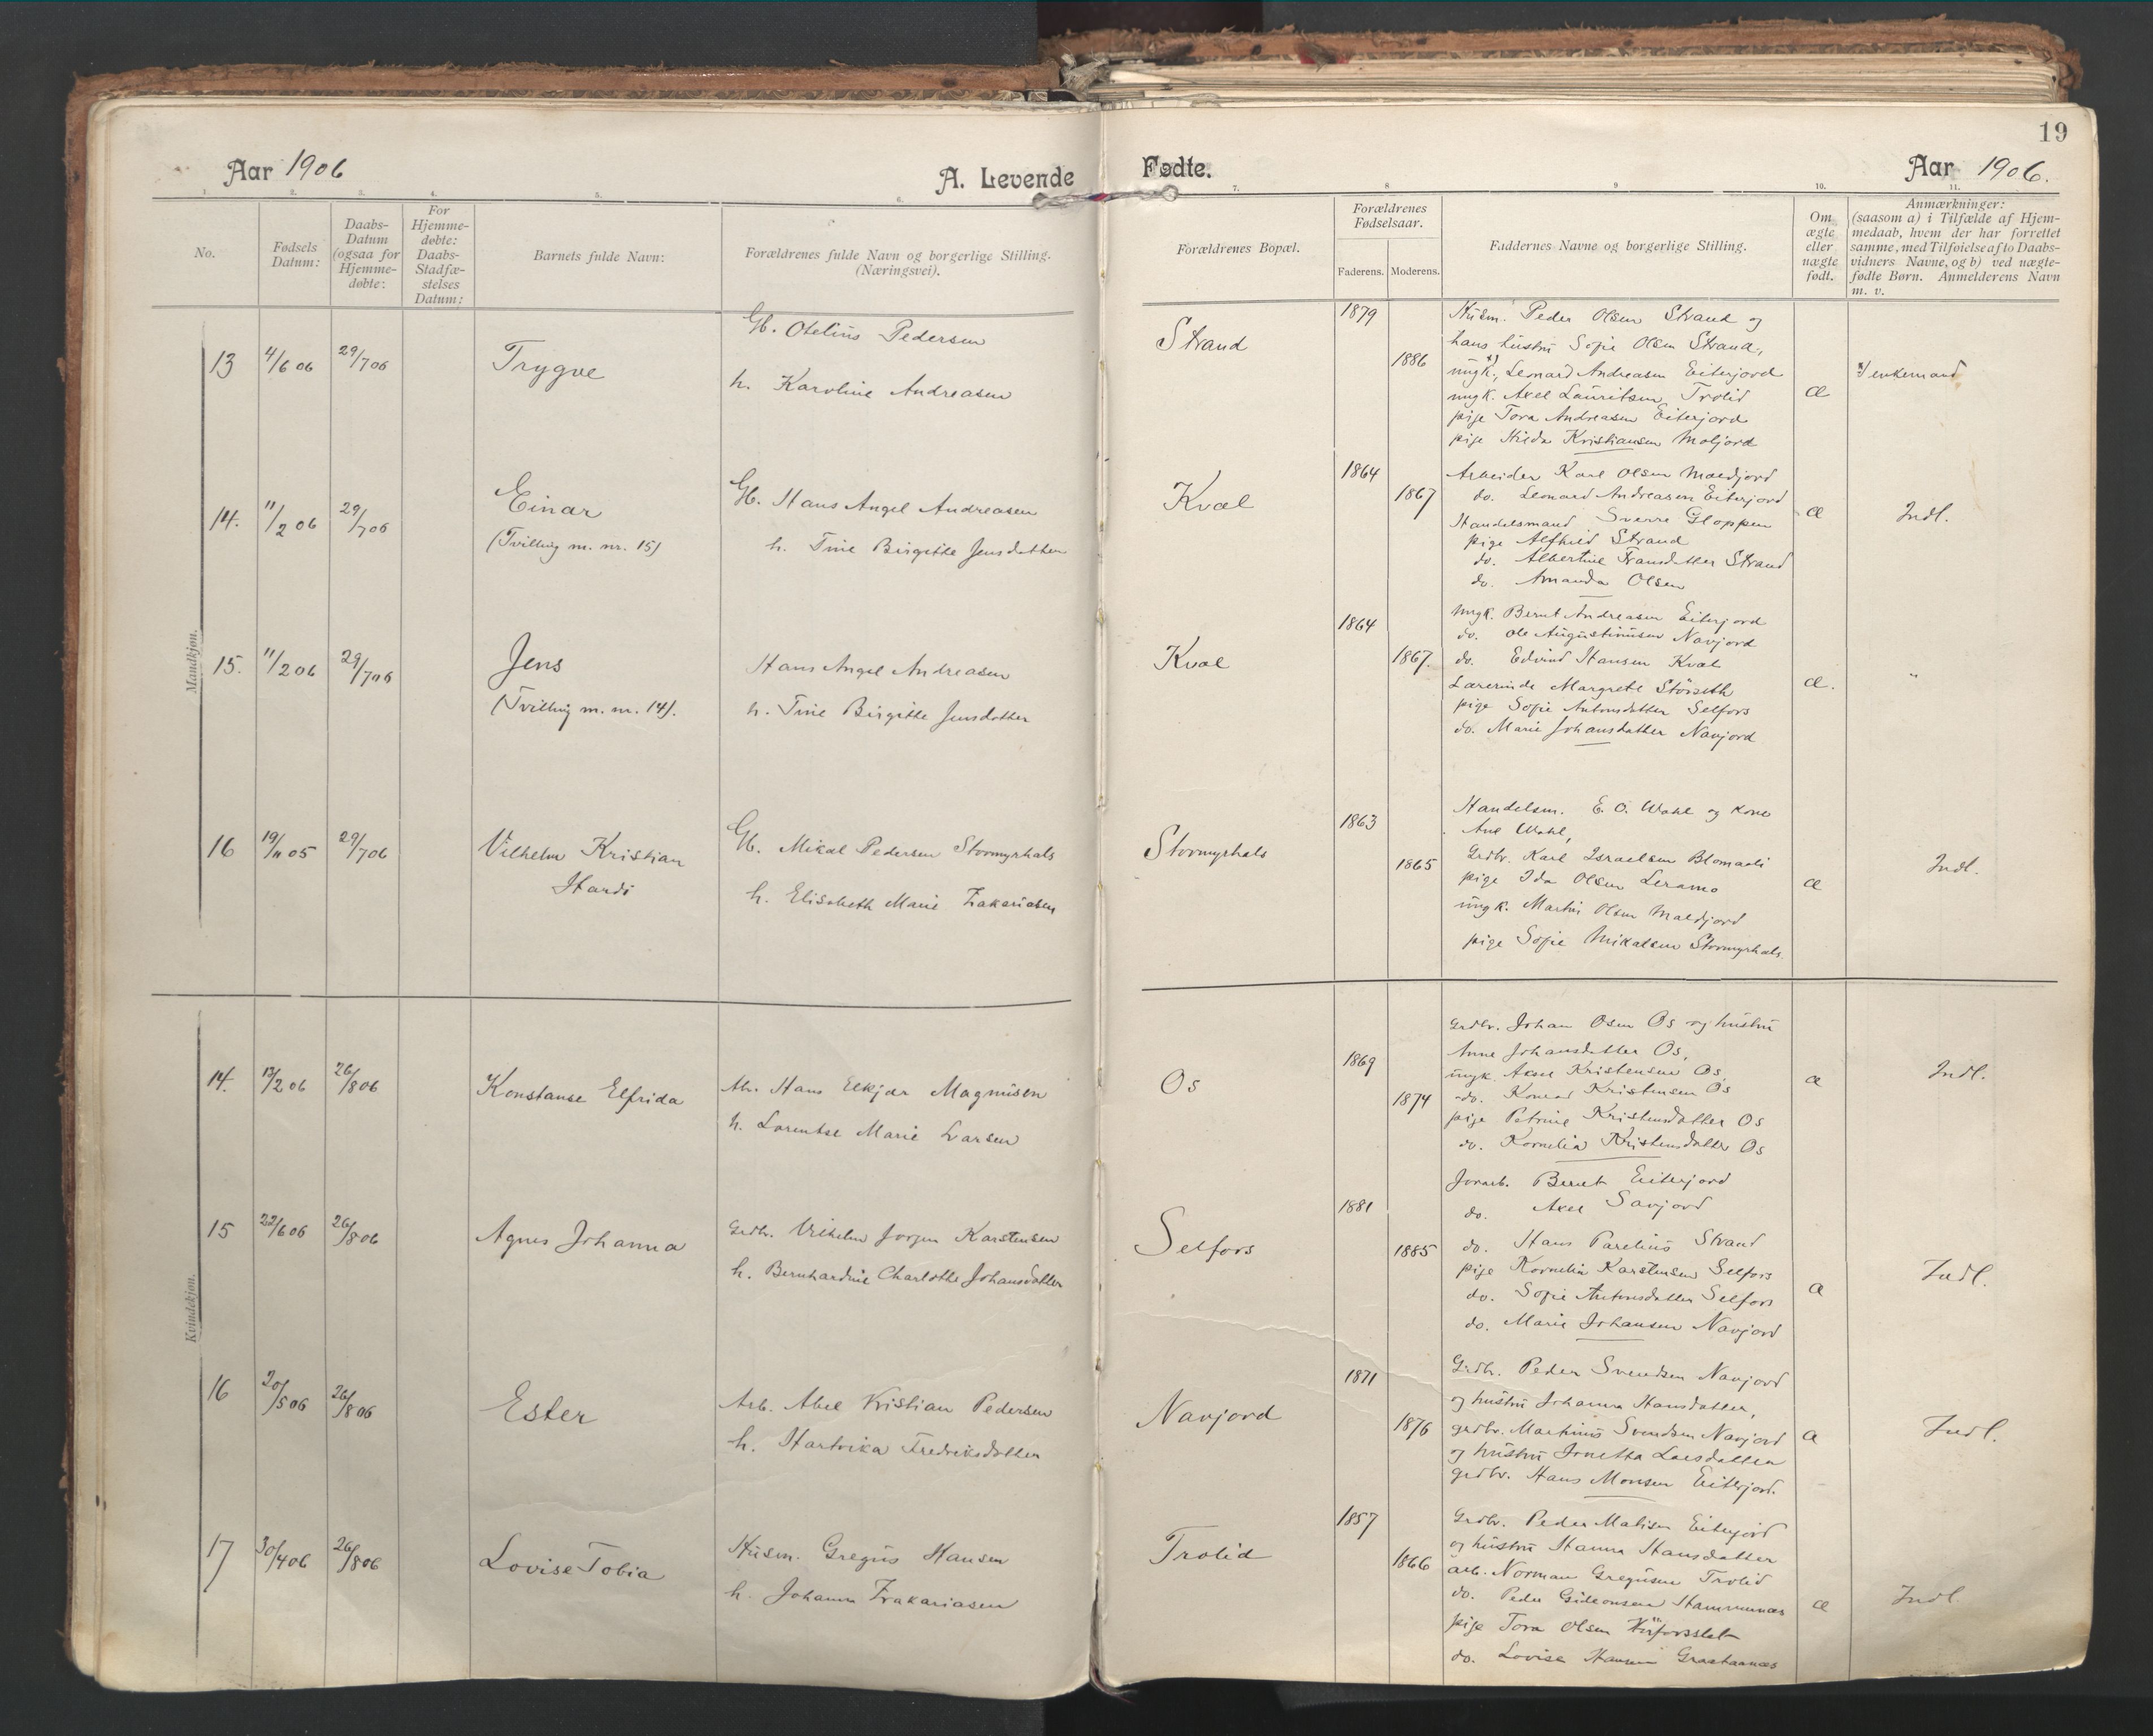 19
Aar 1906
A. Levende
Fødte.
Aar 1906.
1. 2. 3. 4. 5. 6. 7. 8 9 10. 11.
No.
Fødsels Datum:
Daabs-
Datum
(ogsaa for
Hjemme-
døbte:
For
Hjemme-
døbte:
Daabs-
Stadfæ-
stelses
Datum:
Barnets fulde Navn:
Forældrenes fulde Navn og borgerlige Stilling.
(Næringsvei).
Forældrenes Bopæl.
Forældrenes
Fødselsaar.
Faderens. Moderens.
Faddernes Navne og borgerlige Stilling.
Om
ægte
eller
uægte
født.
Anmærkninger:
(saasom a) i Tilfælde af Hjem-
medaab, hvem der har forrettet
samme, med Tilføielse af to Daabs-
vidners Navne, og b) ved uægte-
fødte Børn. Anmelderens Navn
m. v.
Mandkjøn.
13 4/6 06 29/7 06
Trygve
Gb. Otelius Pedersen
h. Karoline Andreasen
Strand
1879
1886
Husm. Peder Olsen Strand og
hans hustru Sofie Olsen Strand,
ungk. x) Leonard Andreasen Eiterjord
ungk. Axel Lauritsen Trolid
pige Tora Andreasen Eiterjord
pige Hilda Kristiansen Moljord
æ
x) enkemand
14. 11/2 06 29/7 06
Einar
(Tvilling m. nr. 15)
Gb. Hans Angel Andreasen
h. Tine Birgitte Jensdatter
Kval
1864
1867
Arbeider Karl Olsen Maldjord
do. Leonard Andreasen Eiterjord
Handelsmand Sverre Gloppen
pige Alfhild Strand
do. Albertine Fransdatter Strand
do. Amanda Olsen
æ
Indl.
15. 11/2 06 29/7 06
Jens
(Tvilling m. nr. 14).
Hans Angel Andreasen
h. Tine Birgitte Jensdatter
Kval
1864
1867.
Ungk. Bernt Andreasen Eiterjord
do. Ole Augustinusen Navjord
do. Edvind Hansen Kval
Lærerinde Margrete Störseth
pige Sofie Antonsdatter Selfors
do. Marie Johansdatter Navjord
æ.
"
16 19/11 05 29/7 06
Vilhelm Kristian
Hardi
Gb. Mikal Pedersen Stormyrhals
h. Elisabeth Marie Zakariasen
Stormyrhals
1863
1865
Handelsm. E. O. Wahl og kone
Ane Wahl,
Grdbr. Karl Israelsen Blomaali
pige Ida Olsen Leramo
ungk. Martin Olsen Maldjord
pige Sofie Mikalsen Stormyrhals
æ
Indl.
Kvindekjøn.
14. 13/2 06 26/8 06
Konstanse Elfrida
Arb. Hans Elkjær Magnusen
h. Lorentse Marie Larsen
Os
1869
1874
Grdbr. Johan Osen Os og hustru
Anne Johansdatter Os,
ungk. Aksel Kristensen Os
do. Konrad Kristensen Os
pige Petrine Kristensdatter Os
do. Kornelia Kristensdatter Os
æ
Indl.
15 22/6 06 26/8 06
Agnes Johanna
Grdbr. Vilhelm Jørgen Karstensen
h. Bernhardine Charlotte Johansdatter
Selfors
1881
1885
Jornarb. Bernt Eiterjord
do. Axel Savjord
do. Hans Parelius Strand
pige Kornelia Karstensen Selfors
do. Sofie Antonsdatter Selfors
do. Marie Johansen Navjord
æ
Indl.
16 20/5 06 26/8 06
Ester
Arb. Abel Kristian Pedersen
h. Hartvika Fredriksdatter
Navjord
1871
1876
Grdbr. Peder Svendsen Navjord
og hustru Johanna Hansdatter,
grdbr. Martinus Svendsen Navjord
og hustru Jonetta Larsdatter
grdbr. Hans Monsen Eiterjord.
æ
Indl.
17 30/4 06 26/8 06
Lovise Tobia
Husm. Gregus Hansen
h. Johanna Zakariasen
Trolid
1857
1866
Grdbr. Peder Matisen Eiterjord
og hustru Hanna Hansdatter
arb. Norman Gregusen Trolid
do. Peder Gideonsen Hammernæs
pige Tora Olsen
do. Lovise Hansen
æ
Indl.